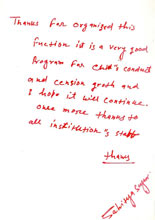 Thanks for organised this
function it is a very good
Program for child's conduct
and cension groth and
I hope it will continue.
once more thanks to
all institution's staff
thanks